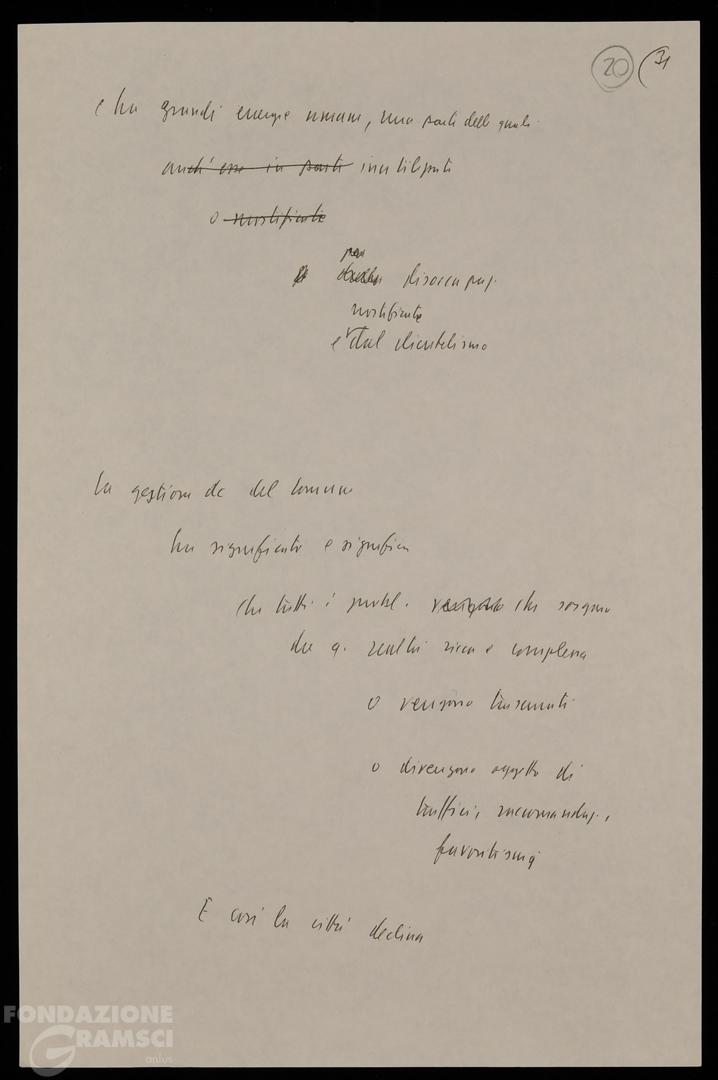 20 31
e ha grandi energie umane, una parte delle quali
anch'esse in parte inutilizzate
o mortificate
per
disoccupaz.
mortificate
e dal clientelismo
la gestione dc del comune
ha significato e significa
che tutti i probl. che sorgono
da q. realtà ricca e complessa
o vengono trascurati
o divengono oggetto di
traffici, raccomandaz.,
favoritismi
E così la città declina
FONDAZIONE
GRAMSCI
onlus